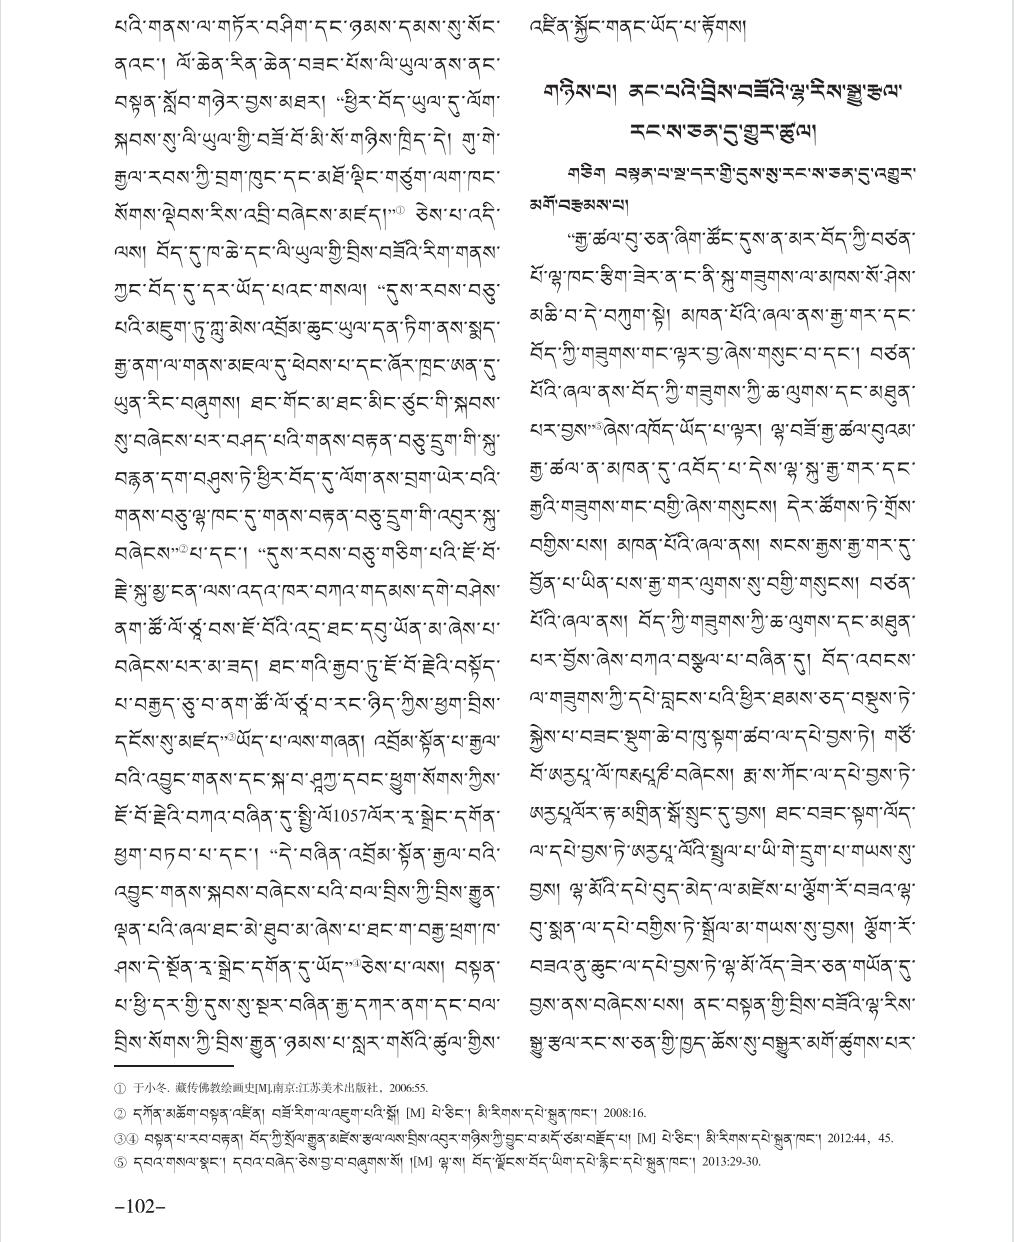 པའི་གནས་ལ་གཏོར་བཤིག་དང་ཉམས་དམས་སུ་སོང་
ནའང་། ལོ་ཆེན་རིན་ཆེན་བཟང་པོས་ལི་ཡུལ་ནས་ནང་
བསྟན་སློབ་གཉེར་བྱས་མཐར། “ཕྱིར་བོད་ཡུལ་དུ་ལོག་
སྐབས་སུ་ལི་ཡུལ་གྱི་བཟོ་བོ་མི་སོ་གཉིས་ཁྲིད་དེ། གུ་གེ་
རྒྱལ་རབས་ཀྱི་བྲག་ཁུང་དང་མཐོ་ལྡིང་གཙུག་ལག་ཁང་
སོགས་ལྡེབས་རིས་འབྲི་བཞེངས་མཛད།”① ཅེས་པ་འདི་
ལས། བོད་དུ་ཁ་ཆེ་དང་ལི་ཡུལ་གྱི་བྲིས་བཟོའི་རིག་གནས་
ཀྱང་བོད་དུ་དར་ཡོད་པའང་གསལ། “དུས་རབས་བཅུ་
པའི་མཇུག་ཏུ་ཀླུ་མེས་འབྲོམ་ཆུང་ཡུལ་དན་ཏིག་ནས་སྨད་
རྒྱ་ནག་ལ་གནས་མཇལ་དུ་ཕེབས་པ་དང་ཞོར་ཁྲང་ཨན་དུ་
ཡུན་རིང་བཞུགས། ཐང་གོང་མ་ཐང་མིང་ཙུང་གི་སྐབས་
སུ་བཞེངས་པར་བཤད་པའི་གནས་བརྟན་བཅུ་དྲུག་གི་སྐུ་
བརྙན་དག་བཤུས་ཏེ་ཕྱིར་བོད་དུ་ལོག་ནས་བྲག་ཡེར་བའི་
གནས་བཅུ་ལྷ་ཁང་དུ་གནས་བརྟན་བཅུ་དྲུག་གི་འབུར་སྐུ་
བཞེངས”②པ་དང་། “དུས་རབས་བཅུ་གཅིག་པའི་ཇོ་བོ་
རྗེ་སྐུ་མྱ་ངན་ལས་འདའ་ཁར་བཀའ་གདམས་དགེ་བཤེས་
ནག་ཚོ་ལོ་ཙཱ་བས་ཇོ་བོའི་འདྲ་ཐང་དབུ་ཡོན་མ་ཞེས་པ་
བཞེངས་པར་མ་ཟད། ཐང་གའི་རྒྱབ་ཏུ་ཇོ་བོ་རྗེའི་བསྟོད་
པ་བརྒྱད་ཅུ་བ་ནག་ཚོ་ལོ་ཙཱ་བ་རང་ཉིད་ཀྱིས་ཕྱག་བྲིས་
དངོས་སུ་མཛད”③ཡོད་པ་ལས་གཞན། འབྲོམ་སྟོན་པ་རྒྱལ་
བའི་འབྱུང་གནས་དང་སྐ་བ་ཤཱཀྱ་དབང་ཕྱུག་སོགས་ཀྱིས་
ཇོ་བོ་རྗེའི་བཀའ་བཞིན་དུ་སྤྱི་ལོ1057ལོར་རྭ་སྒྲེང་དགོན་
ཕྱག་བཏབ་པ་དང་། “དེ་བཞིན་འབྲོམ་སྟོན་རྒྱལ་བའི་
འབྱུང་གནས་སྐབས་བཞེངས་པའི་བལ་བྲིས་ཀྱི་བྲིས་རྒྱུན་
ལྡན་པའི་ཞལ་ཐང་མེ་ཐུབ་མ་ཞེས་པ་ཐང་ག་བརྒྱ་ཕྲག་ཁ་
ཤས་དེ་སྔོན་རྭ་སྒྲེང་དགོན་དུ་ཡོད”④ཅེས་པ་ལས། བསྟན་
པ་ཕྱི་དར་གྱི་དུས་སུ་སྔར་བཞིན་རྒྱ་དཀར་ནག་དང་བལ་
བྲིས་སོགས་ཀྱི་བྲིས་རྒྱུན་ཉམས་པ་སླར་གསོའི་ཚུལ་གྱིས་
འཛིན་སྐྱོང་གནང་ཡོད་པ་རྟོགས།
གཉིས་པ། ནང་པའི་བྲིས་བཟོའི་ལྷ་རིས་སྒྱུ་རྩལ་
རང་ས་ཅན་དུ་གྱུར་ཚུལ།
གཅིག བསྟན་པ་སྔ་དར་གྱི་དུས་སུ་རང་ས་ཅན་དུ་འགྱུར་
མགོ་བརྩམས་པ།
“རྒྱ་ཚལ་བུ་ཅན་ཞིག་ཚོང་དུས་ན་མར་བོད་ཀྱི་བཙན་
པོ་ལྷ་ཁང་རྩིག་ཟེར་ན་ང་ནི་སྐུ་གཟུགས་ལ་མཁས་སོ་ཤེས་
མཆི་བ་དེ་བཀུག་སྟེ། མཁན་པོའི་ཞལ་ནས་རྒྱ་གར་དང་
བོད་ཀྱི་གཟུགས་གང་ལྟར་བྱ་ཞེས་གསུང་བ་དང་། བཙན་
པོའི་ཞལ་ནས་བོད་ཀྱི་གཟུགས་ཀྱི་ཆ་ལུགས་དང་མཐུན་
པར་བྱས”⑤ཞེས་འཁོད་ཡོད་པ་ལྟར། ལྷ་བཟོ་རྒྱ་ཚལ་བུའམ་
རྒྱ་ཚལ་ན་མཁན་དུ་འབོད་པ་དེས་ལྷ་སྐུ་རྒྱ་གར་དང་
རྒྱའི་གཟུགས་གང་བགྱི་ཞེས་གསུངས། དེར་ཚོགས་ཏེ་གྲོས་
བགྱིས་པས། མཁན་པོའི་ཞལ་ནས། སངས་རྒྱས་རྒྱ་གར་དུ་
བྱོན་པ་ཡིན་པས་རྒྱ་གར་ལུགས་སུ་བགྱི་གསུངས། བཙན་
པོའི་ཞལ་ནས། བོད་ཀྱི་གཟུགས་ཀྱི་ཆ་ལུགས་དང་མཐུན་
པར་བྱོས་ཞེས་བཀའ་བསྩལ་པ་བཞིན་དུ། བོད་འབངས་
ལ་གཟུགས་ཀྱི་དཔེ་བླངས་པའི་ཕྱིར་ཐམས་ཅད་བསྡུས་ཏེ་
སྐྱེས་པ་བཟང་སྡུག་ཆེ་བ་ཁུ་སྟག་ཚབ་ལ་དཔེ་བྱས་ཏེ། གཙོ་
བཞེངས། རྨ་ས་ཀོང་ལ་དཔེ་བྱས་ཏེ་
རྟ་མགྲིན་སྒོ་སྲུང་དུ་བྱས། ཐང་བཟང་སྟག་ལོད་
ལ་དཔེ་བྱས་ཏེ་ཨརྱཔཱ་ལོའི་སྤྲུལ་པ་ཡི་གེ་དྲུག་པ་གཡས་སུ་
བྱས། ལྷ་མོའི་དཔེ་བུད་མེད་ལ་མཛེས་པ་ལྕོག་རོ་བཟའ་ལྷ་
བུ་སྨན་ལ་དཔེ་བགྱིས་ཏེ་སྒྲོལ་མ་གཡས་སུ་བྱས། ལྕོག་རོ་
བཟའ་ནུ་ཆུང་ལ་དཔེ་བྱས་ཏེ་ལྷ་མོ་འོད་ཟེར་ཅན་གཡོན་དུ་
བྱས་ནས་བཞེངས་པས། ནང་བསྟན་གྱི་བྲིས་བཟོའི་ལྷ་རིས་
སྒྱུ་རྩལ་རང་ས་ཅན་གྱི་ཁྱད་ཆོས་སུ་བསྒྱུར་མགོ་ཚུགས་པར་
① 于小冬. 藏传佛教绘画史[M].南京:江苏美术出版社，2006:55.
② དཀོན་མཆོག་བསྟན་འཛིན། བཟོ་རིག་ལ་འཇུག་པའི་སྒོ། [M] པེ་ཅིང་། མི་རིགས་དཔེ་སྐྲུན་ཁང་། 2008:16.
③④ བསྟན་པ་རབ་བརྟན། བོད་ཀྱི་སྲོལ་རྒྱུན་མཛེས་རྩལ་ལས་བྲིས་འབུར་གཉིས་ཀྱི་བྱུང་བ་མདོ་ཙམ་བརྗོད་པ། [M] པེ་ཅིང་། མི་རིགས་དཔེ་སྐྲུན་ཁང་། 2012:44，45.
⑤ དབའ་གསལ་སྣང་། དབའ་བཞེད་ཅེས་བྱ་བ་བཞུགས་སོ། །[M] ལྷ་ས། བོད་ལྗོངས་བོད་ཡིག་དཔེ་རྙིང་དཔེ་སྐྲུན་ཁང་། 2013:29-30.
–102–